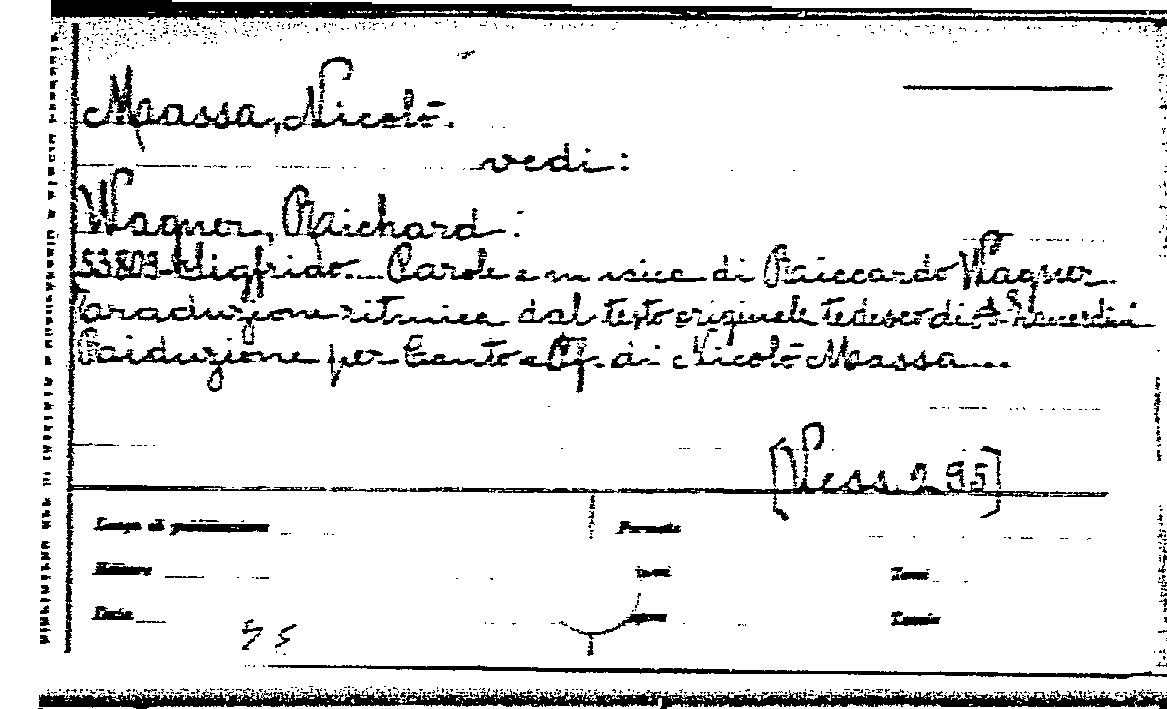 Massa, Nicolò.
vedi:
Wagner, Richard.
53803 - Sigfrido... Parole e musica di Riccardo Wagner.
Traduzione ritmica dal testo originale tedesco di A.
Riduzione per Canto e Pf. di Nicolò Massa....
[Vess. 295]
Luogo di pubblicazione
Formato
Editore
Data